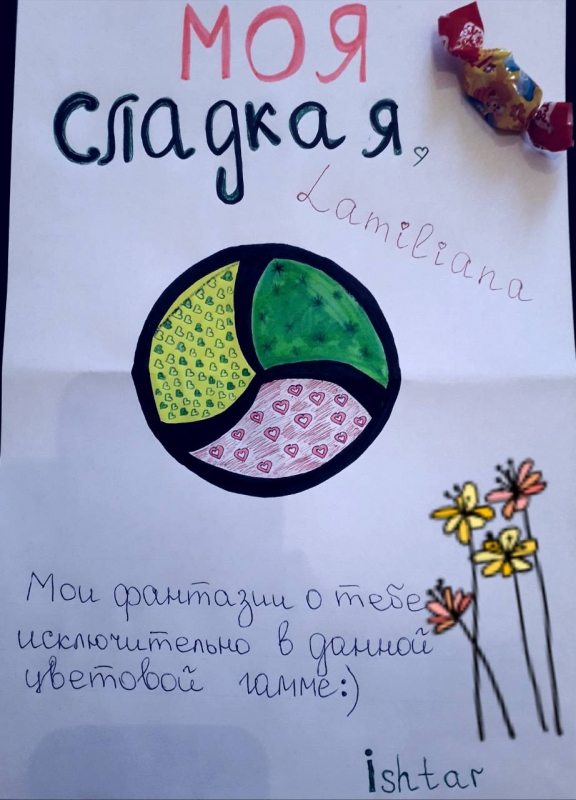 МОЯ
сладкая,
Lamiliana
Мои фантазии о тебе
исключительно в данной
цветовой гамме:)
ishtar